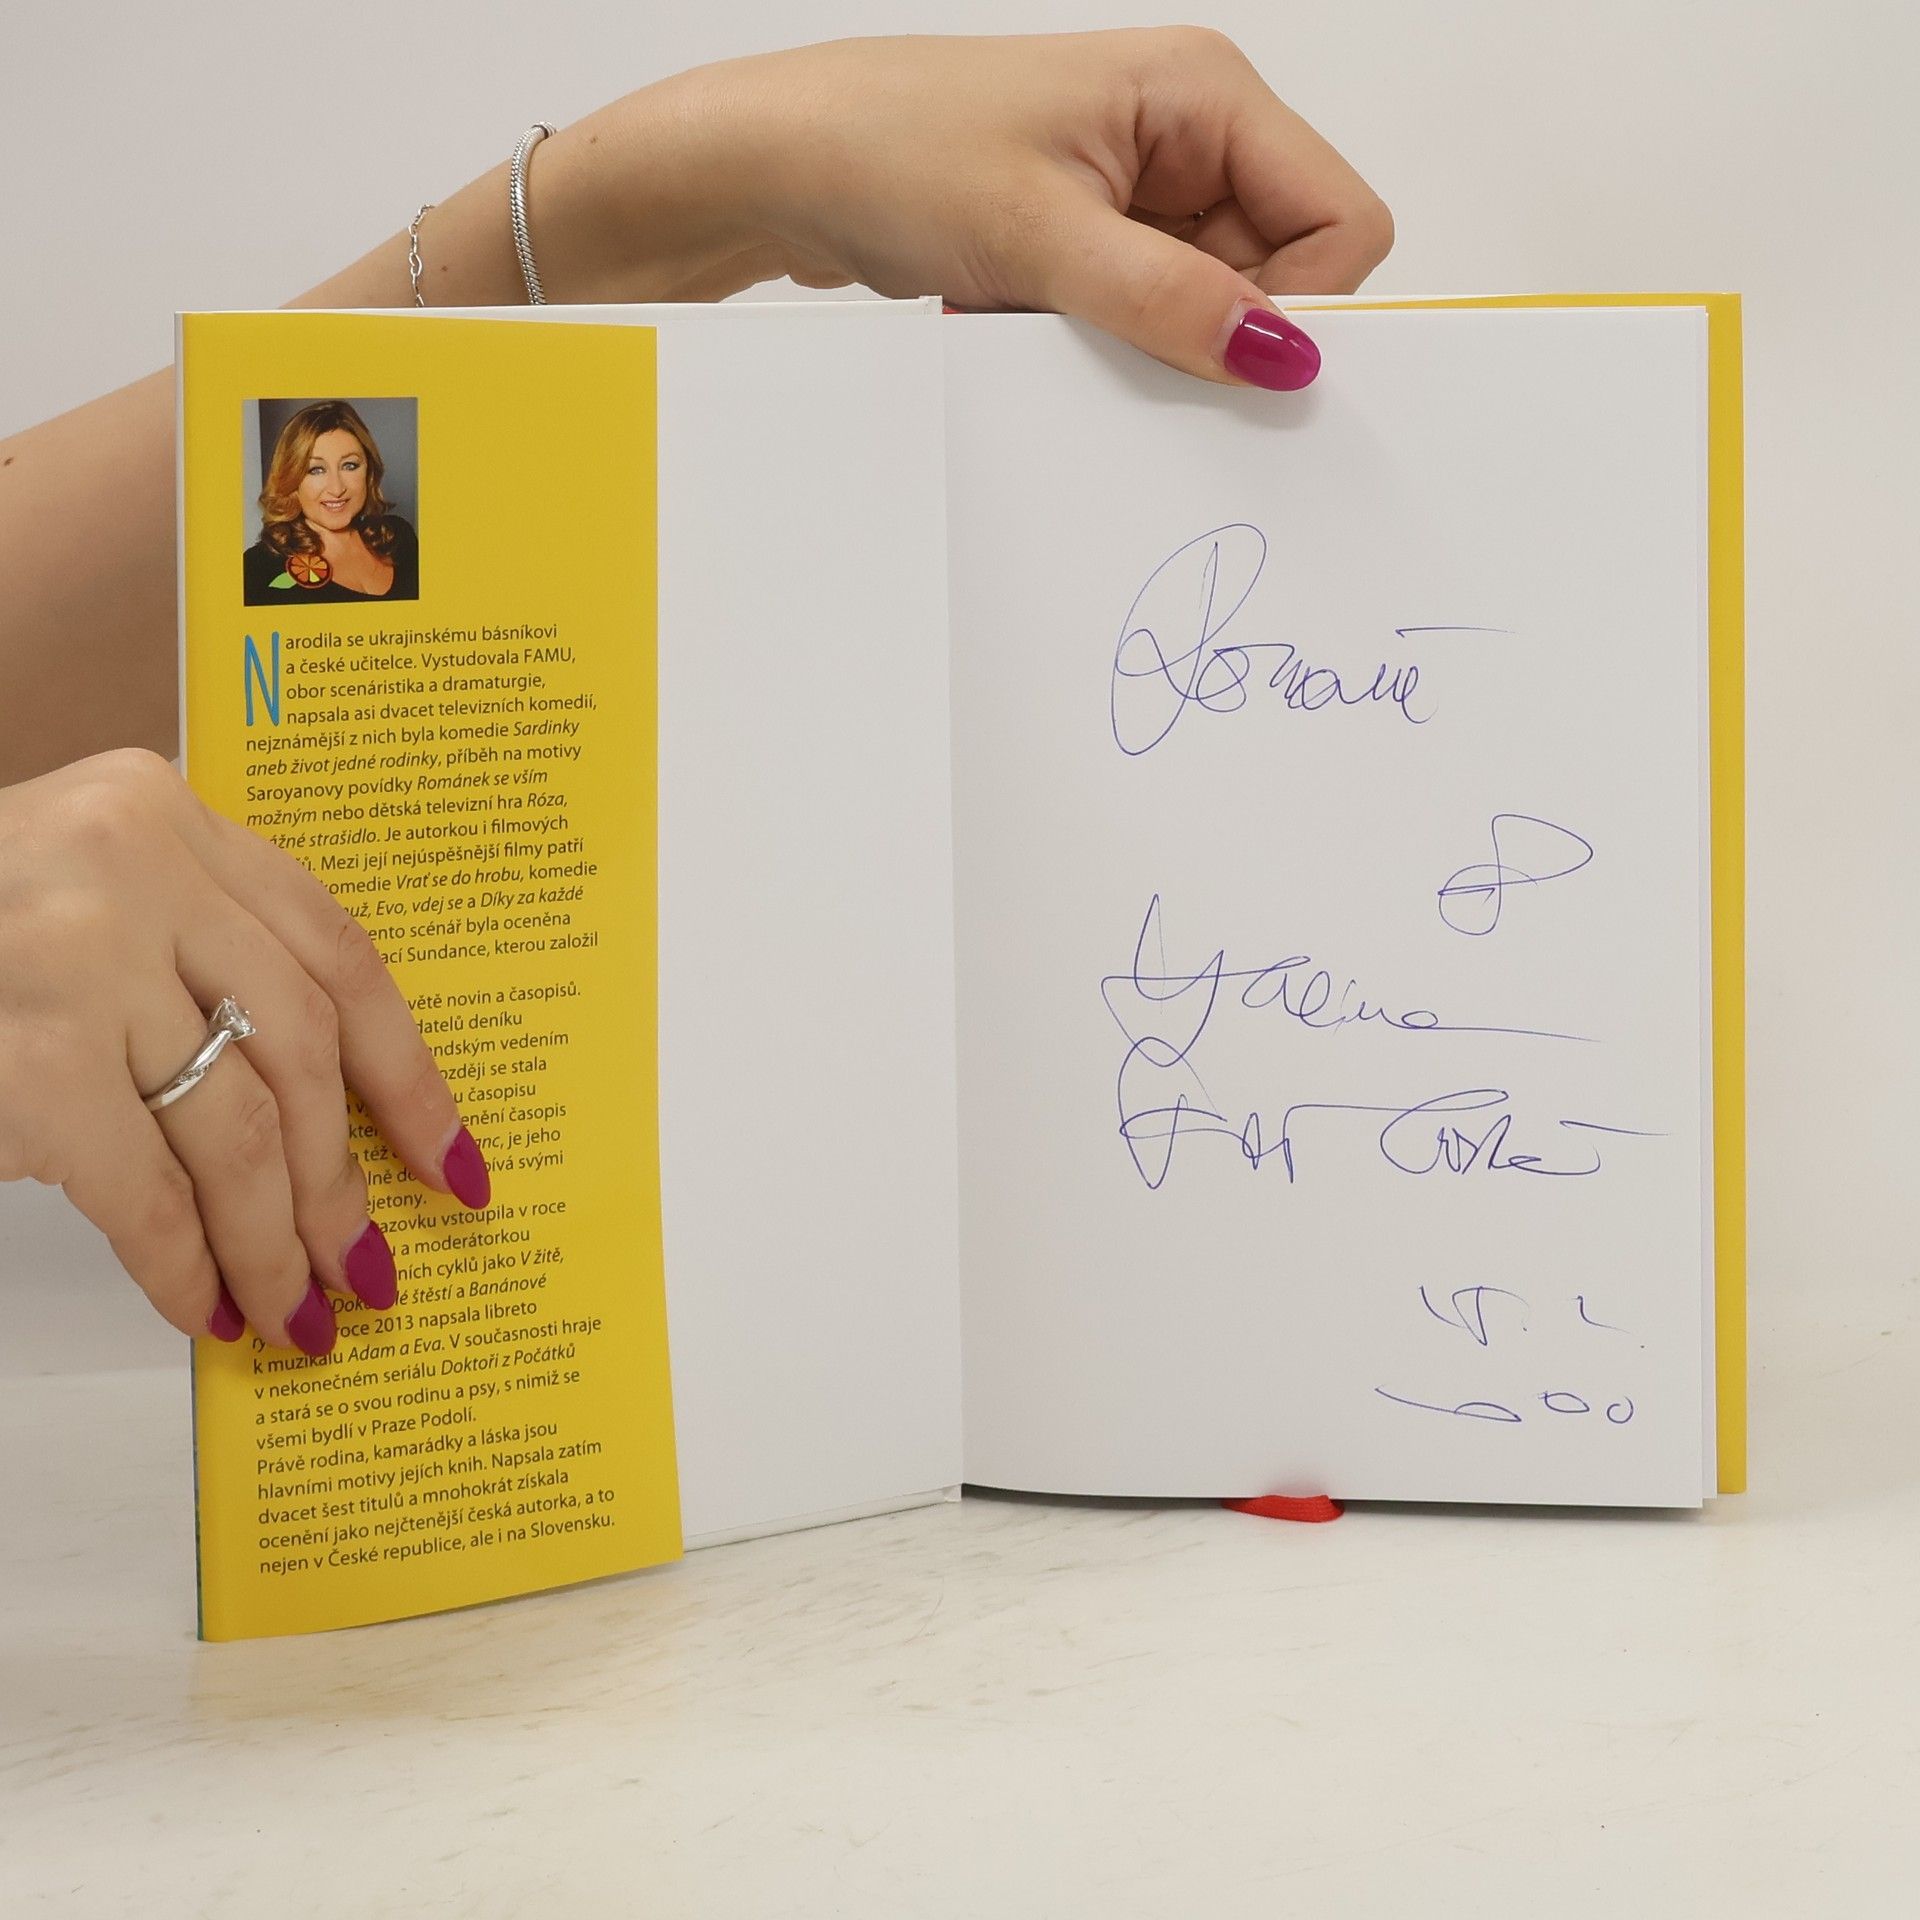 Narodila se ukrajinskému básníkovi
a české učitelce. Vystudovala FAMU,
obor scenáristika a dramaturgie,
napsala asi dvacet televizních komedií,
nejznámější z nich byla komedie Sardinky
aneb život jedné rodinky, příběh na motivy
Saroyanovy povídky Románek se vším
možným nebo dětská televizní hra Róza,
strašidlo. Je autorkou i filmových
Mezi její nejúspěšnější filmy patří
komedie Vrať se do hrobu, komedie
Evo, vdej se a Díky za každé
ento scénář byla oceněna
ací Sundance, kterou založil
větě novin a časopisů.
datelů deníku
andským vedením
ozději se stala
u časopisu
enění časopis
anc, je jeho
a též
pívá svými
lně do
ejetony.
azovku vstoupila v roce
u a moderátorkou
ních cyklů jako V žitě,
Dok lé štěstí a Banánové
ry roce 2013 napsala libreto
k muzikálu Adam a Eva. V současnosti hraje
v nekonečném seriálu Doktoři z Počátků
a stará se o svou rodinu a psy, s nimiž se
všemi bydlí v Praze Podolí.
Právě rodina, kamarádky a láska jsou
hlavními motivy jejích knih. Napsala zatím
dvacet šest titulů a mnohokrát získala
ocenění jako nejčtenější česká autorka, a to
nejen v České republice, ale i na Slovensku.
Romaně
Halina